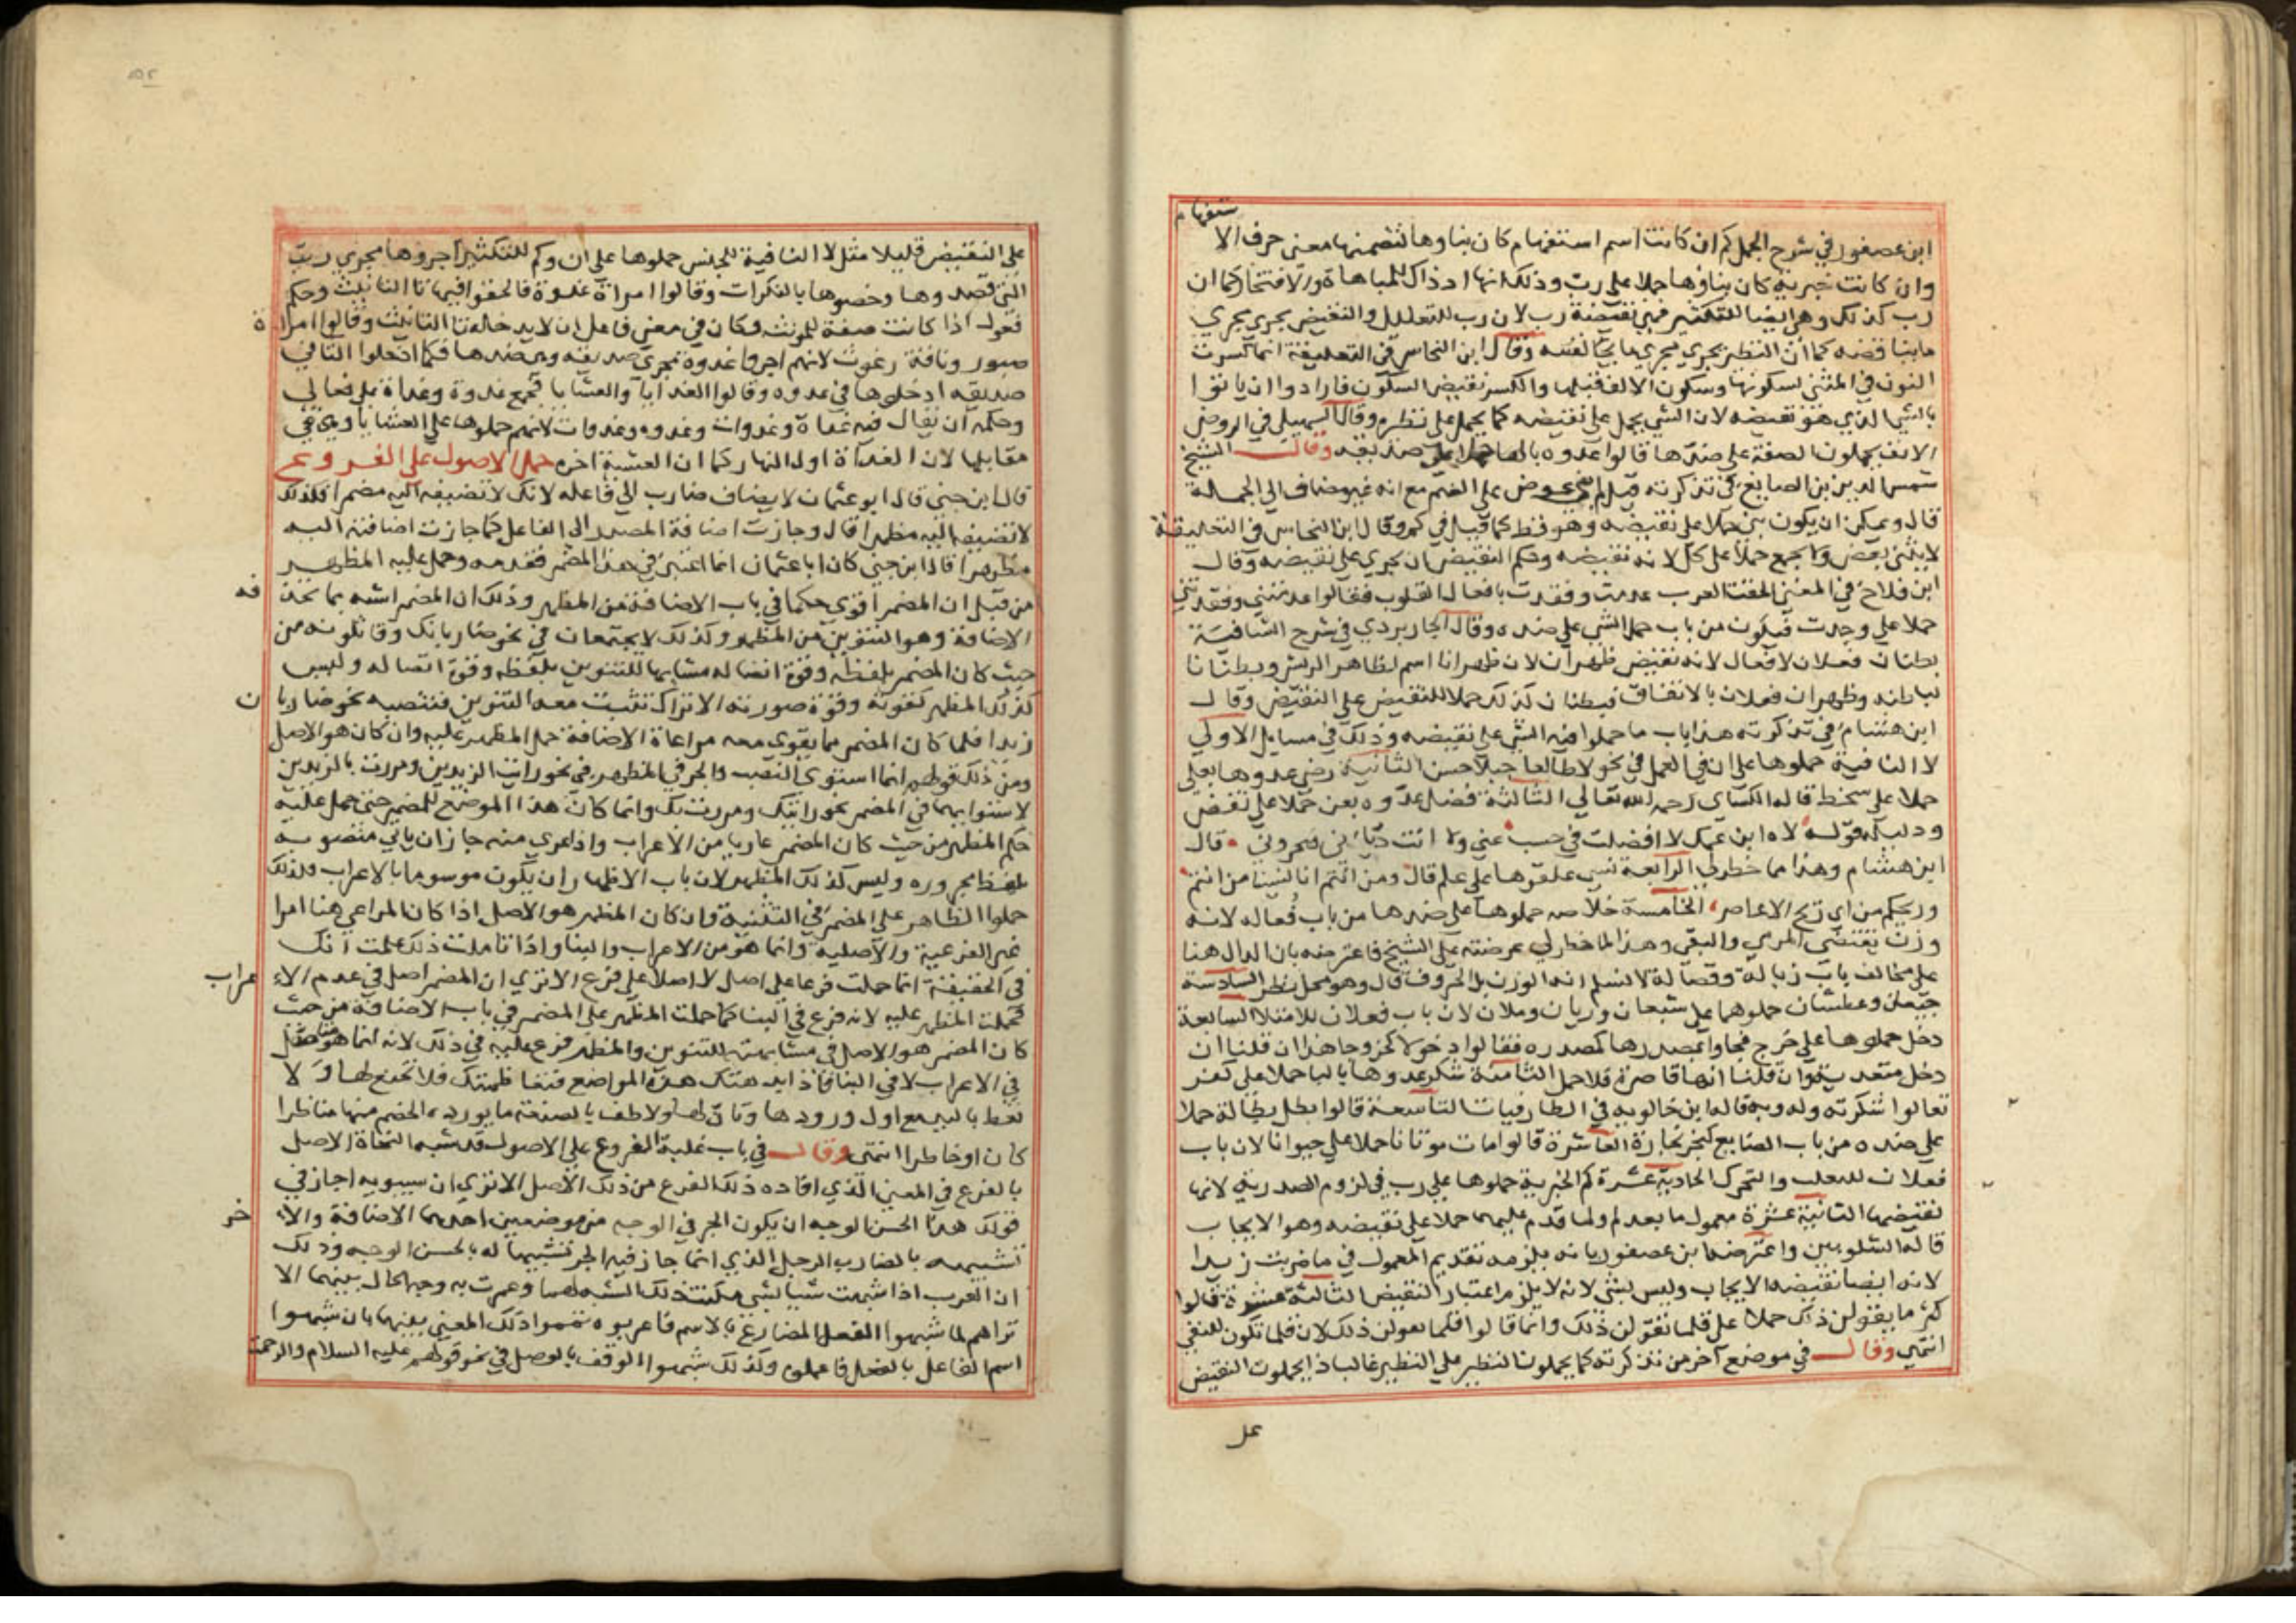 ابن عصفور في شرح الجمل كم ان كانت اسم استفهام كان بناوها لتضمنها معنى حرف الا
ستفهام
وان كانت خبرية كان بناوها حملا على رب وذلك انها اذ ذاك للمباهاة والافتخار كما ان
رب كذلك وهي ايضا للتكثير فهي نقيضة رب لان رب للتقليل والنقيض يجري مجري
ما يناقضه كما ان النظير يجري مجري ما يجانسه وقال ابن النحاس في التعليقة انما كسرت
النون في المثنى لسكونها وسكون الالف قبلها والكسر نقيض السكون فارادوا ان ياتوا
بالشي الذي هو نقيضه لان الشي يحمل على نقيضه كما يحمل على نظيره وقال السهيلي في الروض
الانف يحملون الصفة على ضدها قالوا عدوه بالها حملا على صديقه وقال الشيخ
شمس الدين بن الصايغ في تذكرته قيل بني عوض على الضم مع انه غير مضاف الى الجملة
قال ويمكن ان يكون بني حملا على نقيضه وهو قط كما قيل في كم وقال ابن النحاس في التعليقة
لا يثنى بعض ولا يجمع حملا على كل لانه نقيضه وحكم النقيض ان يجري على نقيضه وقال
ابن فلاح في المغني الحقت العرب عدمت وفقدت بافعال القلوب فقالوا عدمتني وفقدتني
حملا على وجدت فيكون من باب حمل الشي على ضده وقال الجاربردي في شرح الشافية
بطنان فعلان لا فعال لانه نقيض ظهران لان ظهرانا اسم لظاهر الريش وبطنانا
لباطنه وظهران فعلان بالاتفاق فبطنان كذلك حملا للنقيض على النقيض وقال
ابن هشام في تذكرته هذا باب ما حملوا فيه الشي على نقيضه وذلك في مسايل الاولى
لا النافية حملوها على ان في العمل في نحو لا طالعا جبلا حسن الثانية رضي عدوها بعلى
حملا على سخط قاله الكساي رحمه الله تعالى الثالثة فضل عدوه بعن حملا على نقص
ودليله قوله لاه ابن عمك لا افضلت في حسب عني ولا انت دياني فتخزوني قال
ابن هشام وهذا مما خطر لي الرابعة نسي علقوها على علم قال ومن انتم انا نسينا من انتم
وريحكم من اي ريح الاعاصر الخامسة خلاصه حملوها على ضدها من باب فعاله لانه
وزن يقتضي المرمي والبقي وهذا لما خطر لي عرضته على الشيخ فاعترضه بان الدال هنا
على مخالف باب زبالة وفضالة لا نسلم انه الوزن بل الحروف قال وهو محل نظر السادسة
جيعان وعطشان حملوهما على شبعان وريان وملان لان باب فعلان للامتلا السابعة
دخل حملوها على خرج فجاوا بمصدرها كمصدره فقالوا دخولا كخروجا هذا ان قلنا ان
دخل متعد وان قلنا انها قاصرة فلا حمل الثامنة شكر عدوها بالبا حملا على كفر
فقالوا شكرته وله وبه قاله ابن خالويه في الطارقيات التاسعة قالوا بطل بطالة حملا
على ضده من باب الصنايع كنجر نجارة العاشرة قالوا مات موتانا حملا على حيوانا لان باب
فعلان للتقلب والتحرك الحادية عشرة كم الخبرية حملوها على رب في لزوم الصدرية لانها
نقيضها الثانية عشرة معمول ما بعد لم ولما قدم عليهما حملا على نقيضه وهو الايجاب
قاله الشلوبين واعترضه ابن عصفور بانه يلزمه تقديم المعمول في ما ضربت زيدا
لانه ايضا نقيضه الايجاب وليس بشي لانه لا يلزم اعتبار النقيض الثالثة عشرة قالوا
كثر ما يقولن ذلك حملا على قلما تقولن ذلك وانما قالوا قلما تقولن ذلك لان قلما تكون للنفي
انتهى وقال في موضع آخر من تذكرته كما يحملون النظير على النظير غالبا كذا يحملون النقيض
عل
على النقيض قليلا مثل لا النافية للجنس حملوها على ان وكم للتكثير اجروها مجري رب
التي قصدوها وخصوها بالنكرات وقالوا امراة عدوة فالحقوا فيها تا التانيث وحكم
فعول اذا كانت صفة للمونث وكان في معنى فاعل ان لا يدخله تا التانيث وقالوا امرا
ة
صبور وناقة رغوث لانهم اجروا عدوة مجري صديقه وهي ضدها فكما ادخلوا التا في
صديقه ادخلوها في عدوه وقالوا الغدايا والعشايا فجمع غدوة وغداة على فعالي
وحكمه ان يقال فيه غداة وغدوات وغدوه وغدوات لانهم حملوها على العشايا وهي في
مقابلها لان الغداة اول النهار كما ان العشية اخره حمل الاصول على الفروع
قال ابن جني قال ابو عثمان لا يضاف ضارب الى فاعله لانك لا تضيفه اليه مضمرا فكذلك
لا تضيفه اليه مظهرا قال وجازت اضافة المصدر الى الفاعل كما جازت اضافته اليه
مظهرا قال ابن جني كان ابا عثمان انما اعتبر في هذا المضمر فقدمه وحمل عليه المظهر
من قبل ان المضمر اقوى حكما في باب الاضافة من المظهر وذلك ان المضمر اشبه بما تحذ
فه
الاضافة وهو التنوين من المظهر وكذلك لا يجتمعان في نحو ضاربانك وقاتلونه من
حيث كان المضمر بلفظه وقوة اتصاله مشابها للتنوين بلفظه وقوة اتصاله وليس
كذلك المظهر لقوته وقوة صورته الا تراك تثبت معه التنوين فتنصبه نحو ضاربا
ن
زيدا فلما كان المضمر مما يقوى معه مراعاة الاضافة حمل المظهر عليه وان كان هو الاصل
ومن ذلك قولهم انما استوي النصب والجر في المظهر في نحو رايت الزيدين ومررت بالزيدين
لاستوايهما في المضمر نحو رايتك ومررت بك وانما كان هذا الموضع للمضمر حتى حمل عليه
حكم المظهر من حيث كان المضمر عاريا من الاعراب واذا عري منه جاز ان ياتي منصوبه
بلفظ مجروره وليس كذلك المظهر لان باب الاظهار ان يكون موسوما بالاعراب فلذلك
حملوا الظاهر على المضمر في التثنية وان كان المظهر هو الاصل اذا كان المراعي هنا امرا
غير الفرعية والاصلية وانما هو من الاعراب والبنا واذا تاملت ذلك علمت انك
في الحقيقة انما حملت فرعا على اصل لا اصلا على فرع الا ترى ان المضمر اصل في عدم الاء
عراب
فحملت المظهر عليه لانه فرع في البنا كما حملت المظهر على المضمر في باب الاضافة من حيث
كان المضمر هو الاصل في مشابهته للتنوين والمظهر فرع عليه في ذلك لانه انما هو متاصل
في الاعراب لا في البنا فاذا بدهتك هذه المواضع فتعاظمتك فلا تخنع لها ولا
تعط باليد مع اول ورودها وتان لها ولاطف بالصنعة ما يورده الخصم منها مناظرا
كان او خاطرا انتهى وقال في باب غلبة الفروع على الاصول قد شبه النحاة الاصل
بالفرع في المعنى الذي افاده ذلك الفرع من ذلك الاصل الا ترى ان سيبويه اجاز في
قولك هذا الحسن الوجه ان يكون الجر في الوجه من موضعين احدهما الاضافة والاء
خر
تشبيهه بالضارب الرجل الذي انما جاز فيه الجر تشبيها له بالحسن الوجه وذلك
ان العرب اذا شبهت شيا بشي مكنت ذلك الشبه لهما وعمرت به وجه الحال بينهما الا
تراهم لما شبهوا الفعل المضارع بالاسم فاعربوه تمموا ذلك المعنى بينهما بان شبهوا
اسم الفاعل بالفعل فاعملوه وكذلك شبهوا الوقف بالوصل في نحو قولهم عليه السلام والرحمت